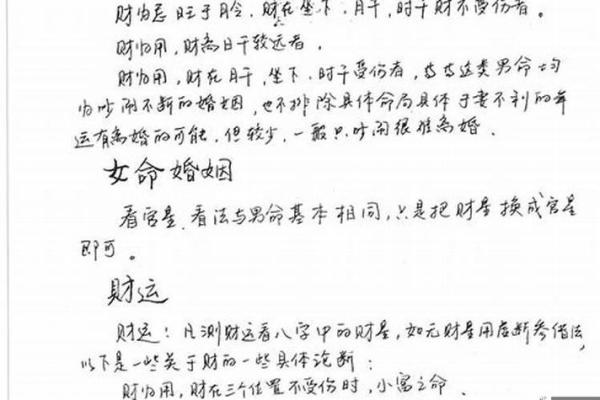 财为忌旺于月令,财在坐下、月干,时干财不受伤者。
财为用,财离日干较远者、
财为用,财在月干,坐下、时干受伤者,凡此类男命均
为吵闹不断的婚姻,也不排除具体命局具体于妻不利的年
运有离婚的可能,但较少,一般只吵闹很难离婚.
女命婚姻
看官星、看法与男命基本相同,只是把财星换成官星
即可。
财运
财运:凡测财运看八字中的财星,如无财星用虚断参借法,
以下是一些关于财的一些具体论断:
财为用,财在三个位置不受伤时,小富之命.